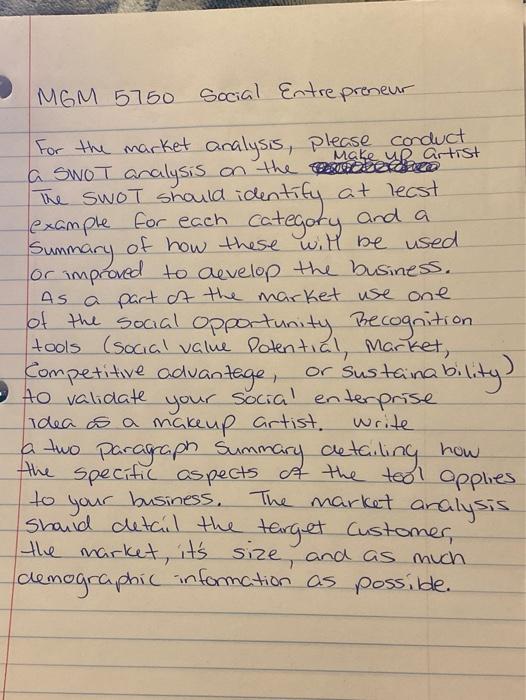 MGM 5750 Social Entrepreneur
For the market analysis, please conduct
a SWOT analysis on the Make up artist
The SWOT should identify at least
example for each category and a
Summary of how these will be used
or improved to develop the business.
As a part of the market use one
of the social opportunity Recognition
tools (social value Potential, Market,
Competitive advantage, or sustainability)
to validate your social enterprise
idea as a makeup artist. Write
a two paragraph summary detailing how
the specific aspects of the tool applies
to your business. The market analysis
should detail the target customer,
the market, it's size, and as much
demographic information as possible.